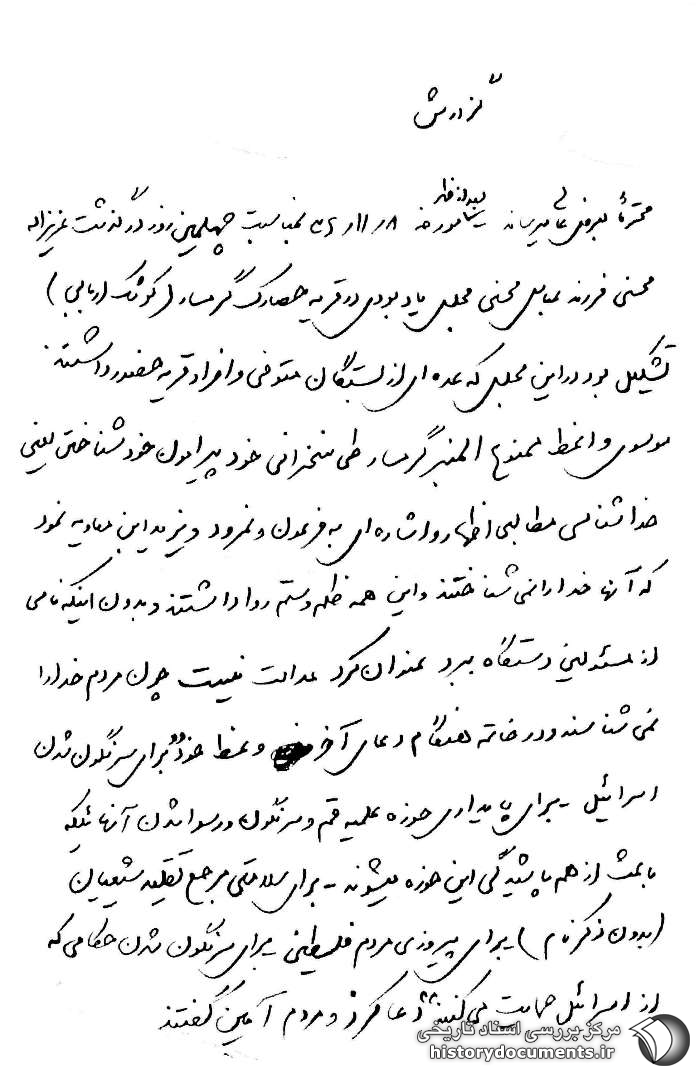 گزارش
محترماً بعرض عالی میرساند بعدازظهر مورخه ۳۶/۱۱/۸ بمناسبت چهلمین روز درگذشت عزیزاله
محسنی فرزند عباسعلی محسنی مجلس یادبودی در قریه حصارک گرمسار (کوشک اربابی)
تشکیل بود در این مجلس که عده ای از بستگان متوفی و افراد قریه حضور داشتند
موسوی واعظ ممنوع المنبر گرمسار طی سخنرانی خود پیرامون خود شناختن یعنی
خداشناسی مطالبی اظهار و اشاره ای به فرعون و نمرود و یزید ابن معاویه نمود
که آنها خدا را نمی شناختند و این همه ظلم و ستم روا داشتند و بدون اینکه نامی
از مسئولین دستگاه ببرد عنوان کرد عدالت نیست چون مردم خدا را
نمی شناسند و در خاتمه هنگام دعای آخر وعظ خود برای سرنگون شدن
اسرائیل - برای پایداری حوزه علمیه قم و سرنگون و رسوا شدن آنهائیکه
باعث از هم پاشیدگی این حوزه میشوند - برای سلامتی مرجع تقلید شیعیان
(بدون ذکر نام) برای پیروزی مردم فلسطین - برای سرنگون شدن حکامی که
از اسرائیل حمایت می کنند دعا کرد و مردم آمین گفتند
مرکز بررسی اسناد تاریخی
historydocuments.ir